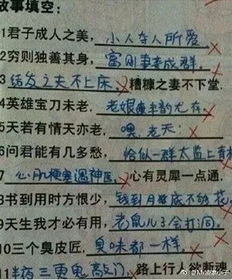 故事填空：
1君子成人之美，小人夺人所爱
2穷则独善其身，富则妻妾成群。
3结发之夫不上床，糟糠之妻不下堂.
4英雄宝刀未老，老娘风韵尤存
5天若有情天亦老，嘿，老天!
6问君能有几多愁，恰似一群太监上青楼
7心肌梗塞遇神医，心有灵犀一点通.
8书到用时方恨少，钱到月底不够花
9天生我才必有用，老鼠儿子会打洞
10三个臭皮匠，臭味都一样，
11半夜三更鬼敲门，路上行人欲断魂